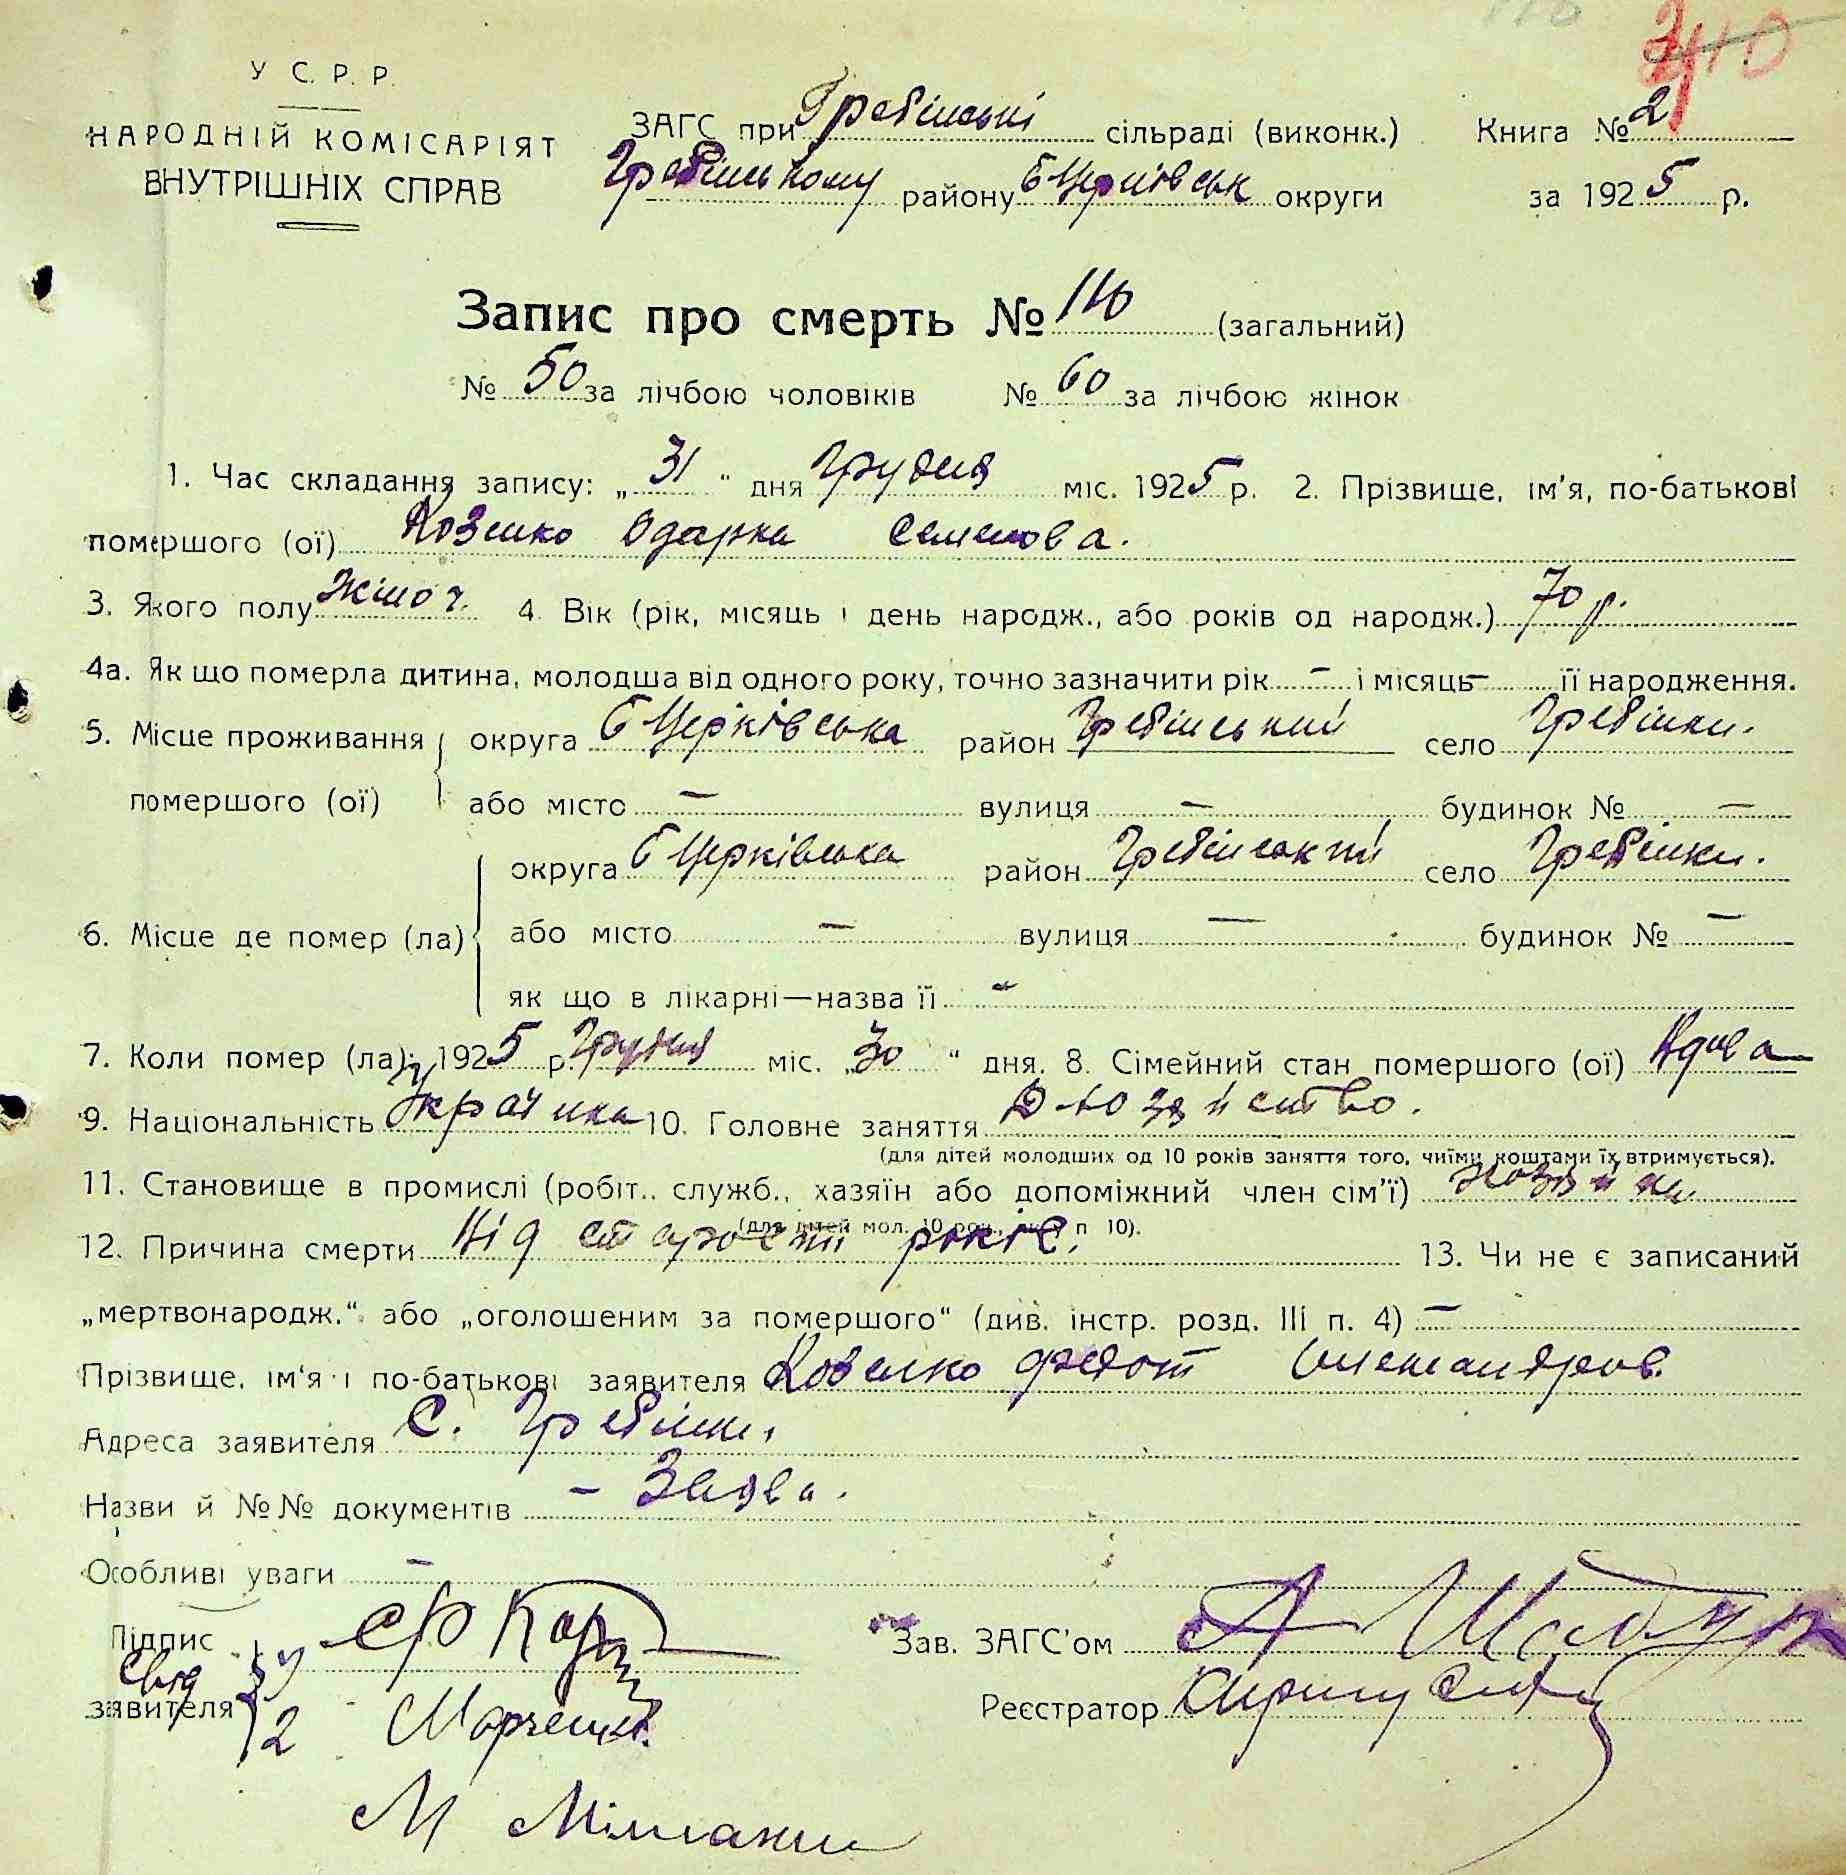 У С. Р. Р.
НАРОДНІЙ КОМІСАРІЯТ
ВНУТРІШНІХ СПРАВ
ЗАГС при Гребінській сільраді (виконк.) Книга № 2
Гребінському району БЦерківськ округи за 1925 р.
Запис про смерть № 110 (загальний)
№ 50 за лічбою чоловіків № 60 за лічбою жінок
1. Час складання запису: „ 31 " дня Грудня міс. 1925 р. 2. Прізвище, ім'я, по-батькові
помершого (ої) Козенко Одарка Семенова.
3. Якого полу жіноч. 4. Вік (рік, місяць і день народж., або років од народж.) 70 р.
4а. Як що померла дитина, молодша від одного року, точно зазначити рік – і місяць – її народження.
5. Місце проживання округа БЦерківська район Гребінський село Гребінки.
помершого (ої) або місто – вулиця – будинок № –
округа БЦерківська район Гребінський село Гребінки.
6. Місце де помер (ла) або місто – вулиця – будинок № –
як що в лікарні—назва її –
7. Коли помер (ла): 1925 р. Грудня міс. „ 30 " дня. 8. Сімейний стан помершого (ої) Вдова
9. Національність Українка 10. Головне заняття
(для дітей молодших од 10 років заняття того, чиїми коштами їх втримується).
11. Становище в промислі (робіт., служб., хазяїн або допоміжний член сім'ї)
(для дітей мол. 10 рок., п 10).
12. Причина смерти Від старости років. 13. Чи не є записаний
„мертвонародж." або „оголошеним за помершого" (див. інстр. розд. III п. 4) –
Прізвище, ім'я і по-батькові заявителя Козенко Федот Олександров.
Адреса заявителя С. Гребінки.
Назви й №№ документів – Заява.
Особливі уваги –
Підпис Зав. ЗАГС'ом А
заявителя 2 Марченко. Реєстратор
М